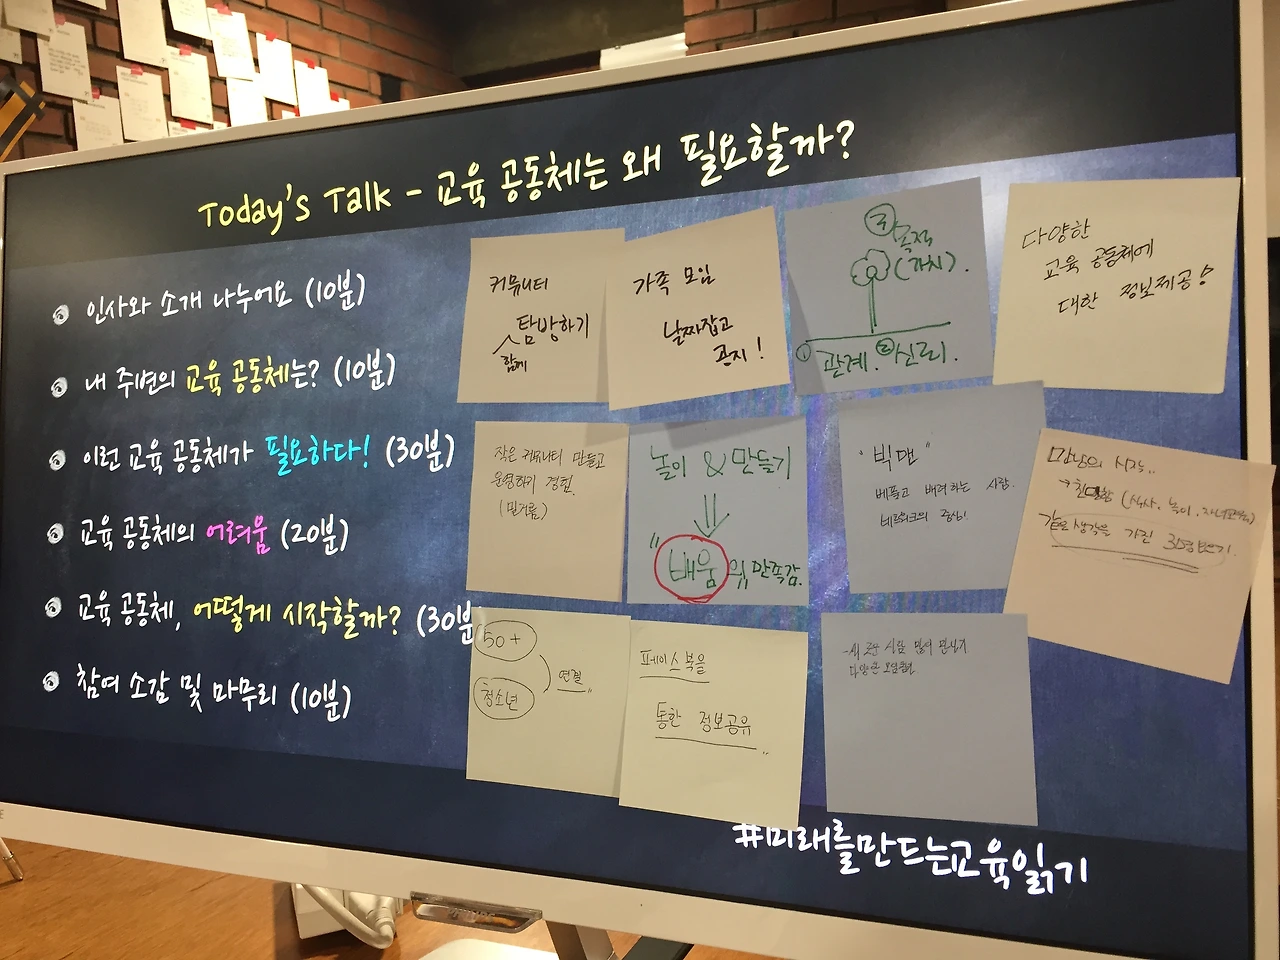 Today's Talk - 교육 공동체는 왜 필요할까?
인사와 소개 나누어요 (10분)
내 주변의 교육 공동체는? (10분)
이런 교육 공동체가 필요하다! (30분)
교육 공동체의 어려움 (20분)
교육 공동체, 어떻게 시작할까? (30분
참여 소감 및 마무리 (10분)
커뮤니티
탐방하기
함께
가족 모임
날짜잡고
공지!
③ 목적
(가치).
① 관계. ② 신뢰.
다양한
교육 공동체에
대한 정보제공?
작은 커뮤니티 만들고
운영하기 경험.
(밑거름)
놀이 & 만들기
"배움"의 만족감.
"빅맨"
베풀고 배려하는 사람.
네트워크의 중심.
만남의 시작..
→ (식사, 놀이,
같은 생각을 가진 3명
50+
청소년
연결
페이스북을
통한 정보공유
- 새로운 사람 많이 만나기
다양한
#미래를만드는교육읽기